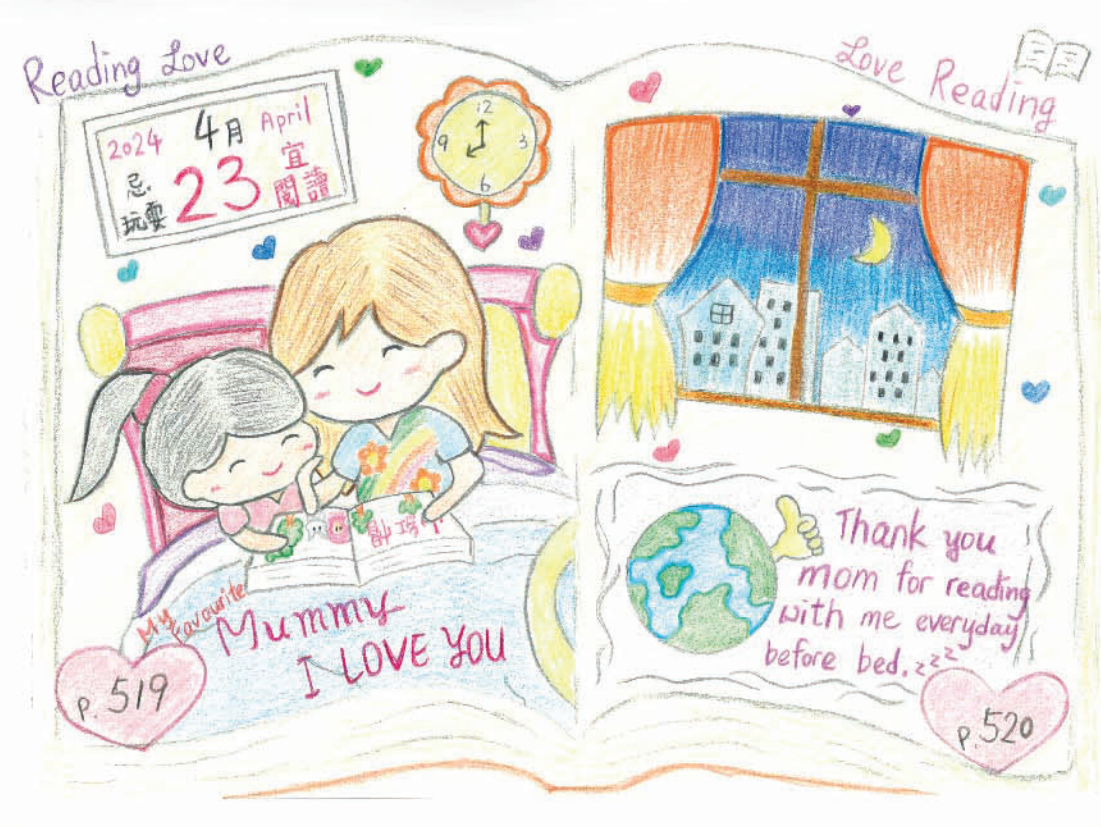 Reading Love
2024 4月 April
忌 玩耍
23
宜 閱讀
12
9 3
6
My Favourite
Mummy
I LOVE YOU
p. 519
Love Reading
Thank you
mom for reading
with me everyday
before bed. zzz
p. 520